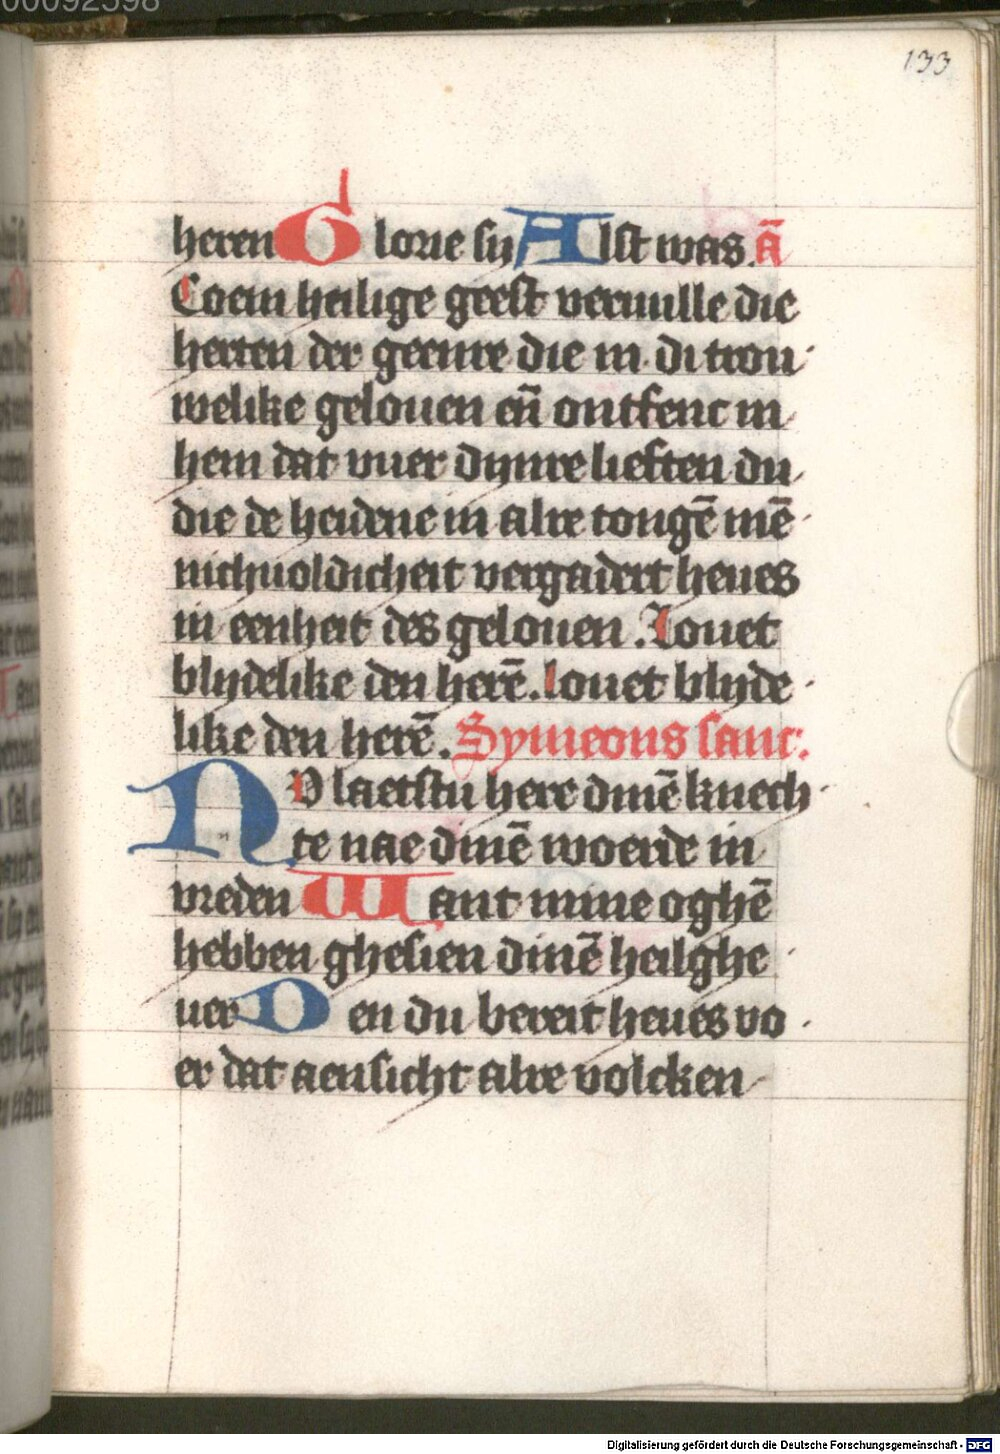 133
heren Glorie sy Alst was. ā
Coem heilige geest veruulle die
herten der geenre die in di trou
welike gelouen eñ ontfenc in
hem dat vuer dynre lieften du
die de heidene in alre tongē mē
nichuoldicheit vergadert heues
in eenheit des gelouen. Louet
blydelike den herē. louet blyde
like den herē. Symeons sanc.
NV laetstu here dinē knech
te nae dinē woerde in
vreden Want mine oghē
hebben ghesien dinē heilghe
uer Den du bereit heues vo
er dat aensicht alre volcken
Digitalisierung gefördert durch die Deutsche Forschungsgemeinschaft - DFG